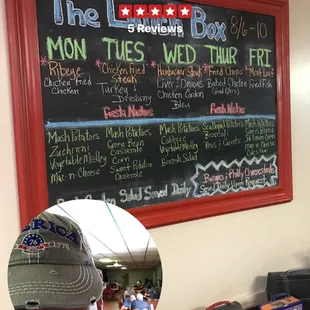 The Lunch Box 8/6-10
5 Reviews
MON TUES WED THUR FRI
*Ribeye *Chicken Fried *Hamburger Steak *Fried Chops *Meat Loaf
Chicken Fried Steak Liver & Onions Baked Chicken Fried Fish
Chicken Turkey & Chicken Cordon
Dressing Bleu
Fiesta Nachos Fiesta Nachos
Mash Potatoes Mash Potatoes Mash Potatoes Scalloped Potatoes Mash Potatoes
Zucchini Green Bean
Vegetable Medley Casserole
Mac-n-Cheese Corn
Sweet Potato
Casserole
Vegetable Medley
Broccoli Salad
Peas & Carrots
Salad Served Daily
Burgers & Philly Cheesesteaks
Served Daily Upon Request
AMERICA
76
1776